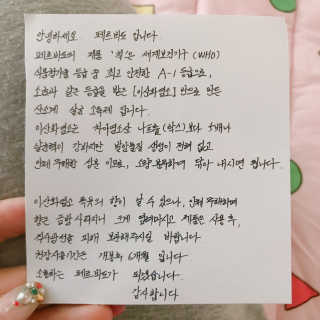 안녕하세요 페르바도 입니다
페르바도의 제품 '칙'은 세계보건기구 (WHO)
식품첨가물 등급 중 최고 안전한 A-1 등급으로,
소금과 같은 등급을 받은 [이산화염소] 만으로 만든
산소계 살균 소독제 입니다.
이산화염소는 차아염소산 나트륨(락스)보다 5배나
살균력이 강하지만 발암물질 생성이 전혀 없고
인체 무해한 성분 이므로, 소량 분무하여 닦아 내시면 됩니다.
이산화염소 특유의 향이 날 수 있으나, 인체 무해하며
향은 금방 사라지니 크게 염려마시고 제품은 사용 후,
직사광선을 피해 보관해주시길 바랍니다
권장사용기간은 개봉후 6개월 입니다
소통하는 페르바도가 되겠습니다.
감사합니다